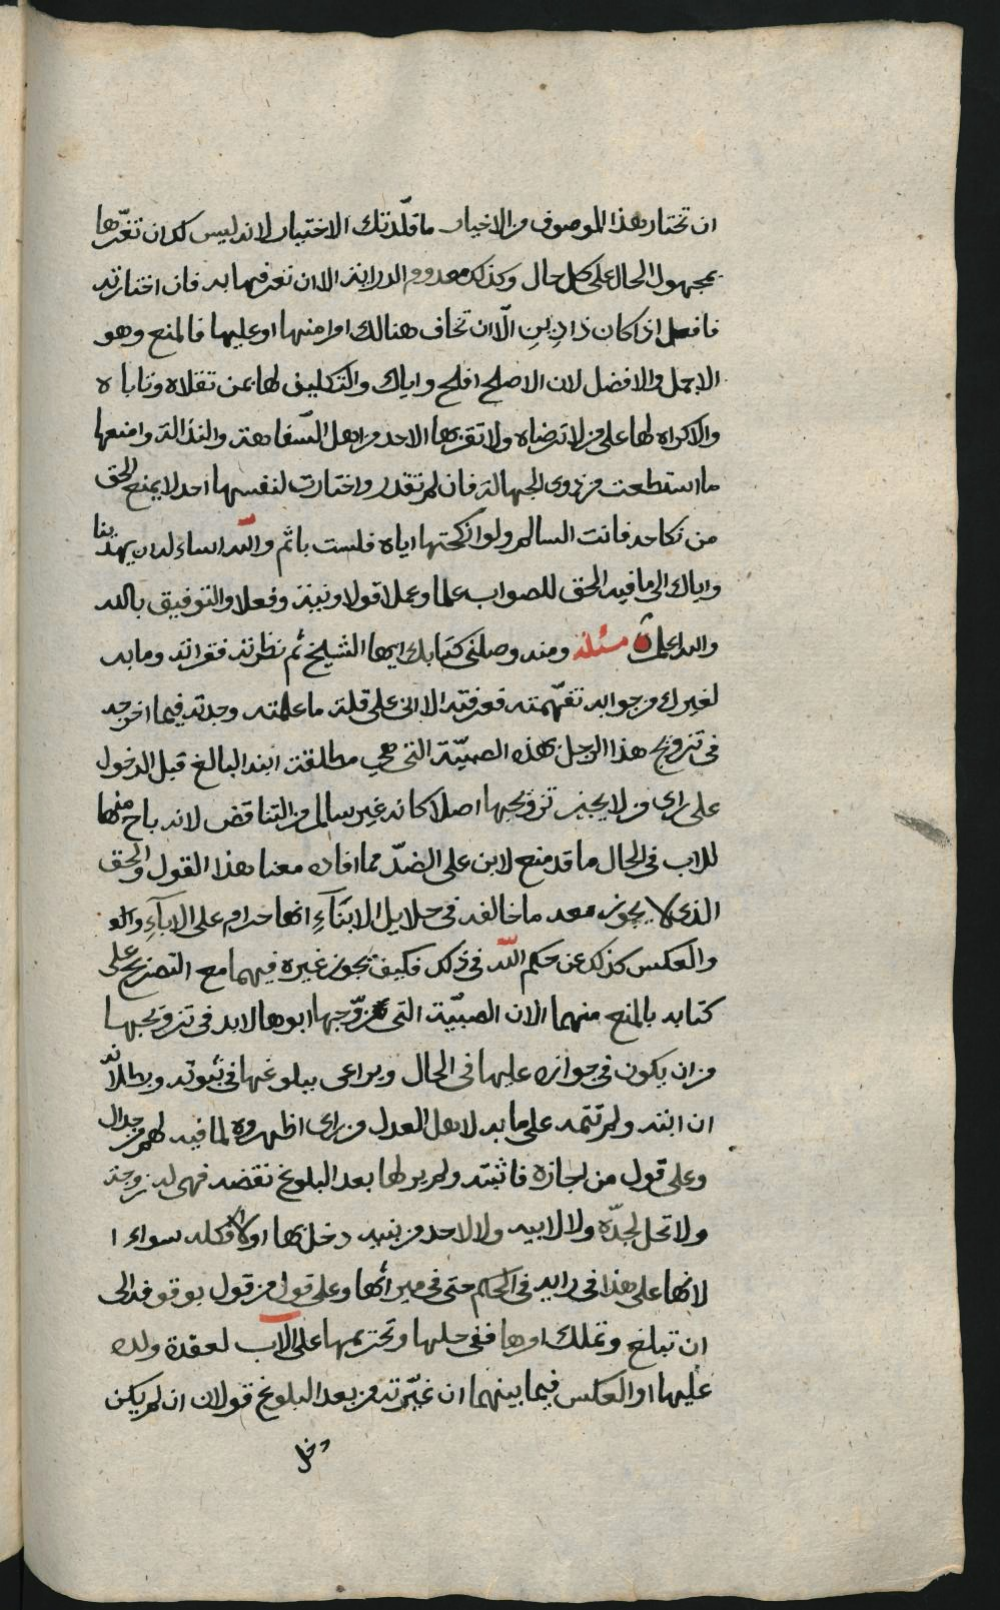 ان تختار هذا الموصوف من الاخيار ما قلّدتك الاختيار لانه ليس لك ان تغرّها
بمجهول الحال على كل حال وكذلك معدوم الدراية الا ان تعرفها به فان اختارته
فافعل اذا كان ذا دين الّا ان تخاف هنالك امرا منها او عليها فالمنع وهو
الاجمل والافضل لان الاصلح افلح واياك والتكليف لها بمن تقلاه وتاباه
والاكراه لها على من لا ترضاه ولا تقربها الاحد من اهل السّفاهة والنذالة وامنعها
ما استطعت من ذوى الجهالة فان لم تقدر واختارت لنفسها احد لا يمنع الحق
من نكاحه فانت السالم ولو انكحتها اياه فلست باثم والله اساءله ان يهدينا
واياك الى ما فيه الحق للصواب علما وعملا قولا ونية وفعلا والتوفيق بالله
والله اعلم مسئلة ومنه وصلنى كتابك ايها الشيخ ثم نظرته فقراته وما به
لغيرك من جوابه تفهّمته فعرفته الا انى على قلة ما علمته وجدته فيما اخرجه
فى تزويج هذا الرجل بهذه الصبيّة التى هي مطلقة ابنه البالغ قبل الدخول
على راى من لا يجيز تزويجها اصلا كانه غير سالم من التناقض لانه باح منها
للاب فى الحال ما قد منع لابن على الضدّ مما افاده معنا هذا القول والحق
الذى لا يجوز معه ما خالفه فى حلايل الابنآءِ انها حرام على الابآءِ
والعكس كذلك عن حكم اللّه فى ذلك فكيف يجوز غيره فيهما مع التصريح على
كتابه بالمنع منهما الان الصبيّة التى زوّجها ابوها لابد فى تزويجها
من ان يكون فى جوازه عليها فى الحال ويراعى ببلوغها فى ثبوته وبطلانه
ان اتته ولم تتمه على ما به لاهل العدل من راى اظهروه لما فيه لهم من جدال
وعلى قول من اجازه فاثبته ولم ير لها بعد البلوغ نقضه فهى له زوجة
ولا تحل لجدّه ولا لابيه ولا لاحد من بنيه دخل بها او لا فكله سواء ا
لانها على هذا فى رايه فى الحكم حتى فى ميراثها وعلى قول من قول بوقوفه الى
ان تبلغ وتملك امرها ففى حلها وتحريمها على الاب لعقدة ولده
عليها او العكس فيما بينهما ان غيّرته من بعد البلوغ قولان ان لم يكن
دخل